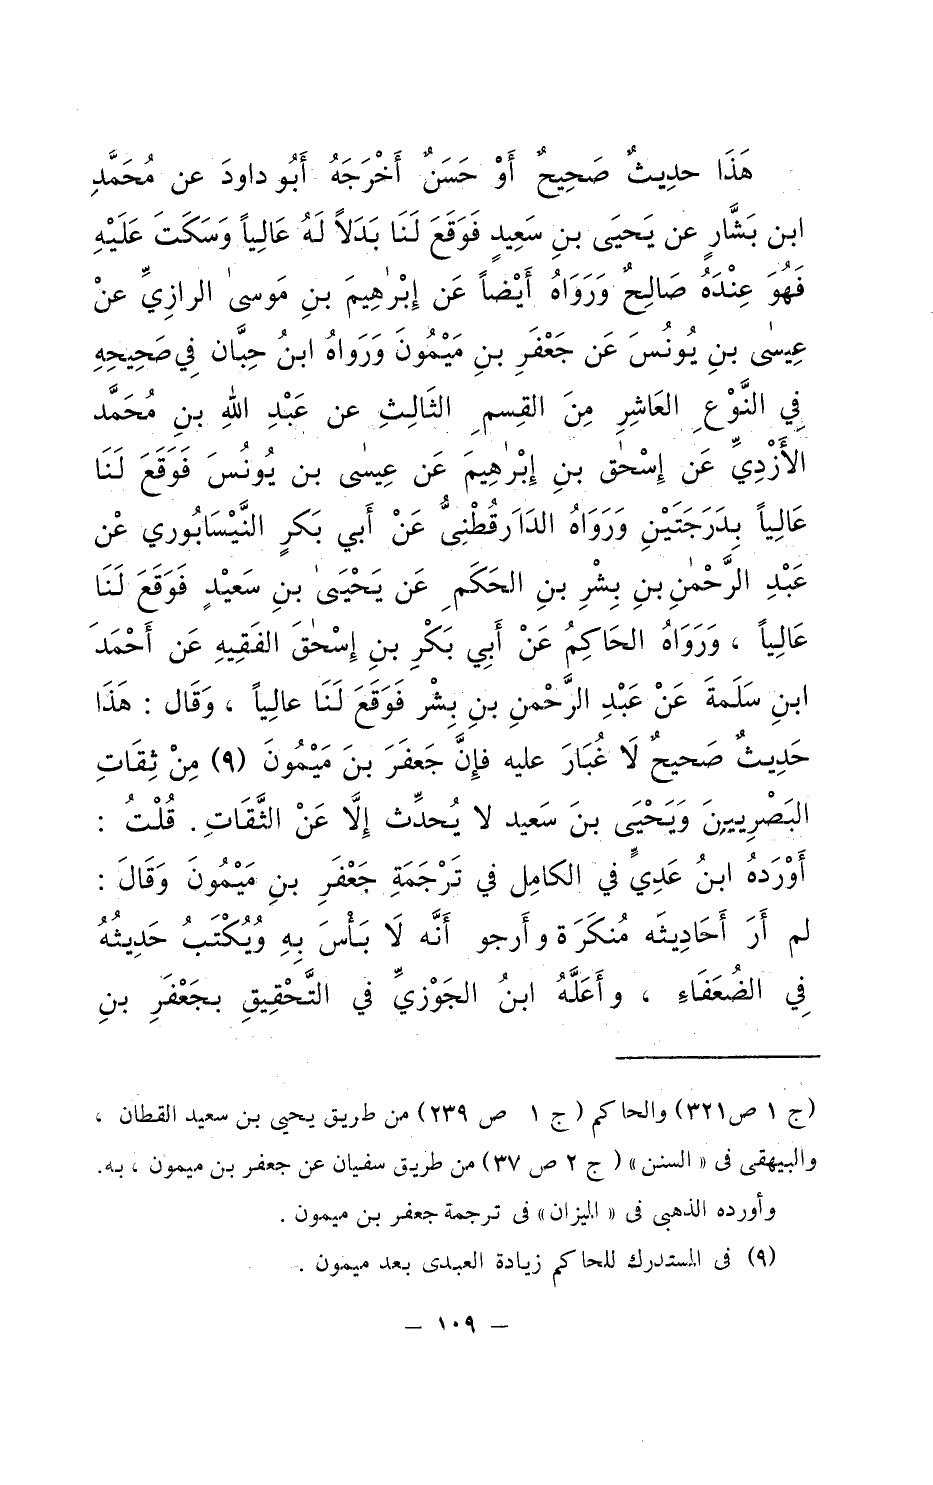 هَذَا حدِيثٌ صَحِيحٌ أَوْ حَسَنٌ أَخْرَجَهُ أَبُو داودَ عن مُحَمَّدِ
ابن بَشَّارٍ عن يَحيَى بنِ سَعِيدٍ فَوَقَعَ لَنَا بَدَلاً لَهُ عَالِياً وَسَكَتَ عَلَيْهِ
فَهُوَ عِنْدَهُ صَالِحٌ وَرَوَاهُ أَيْضاً عَن إِبْرٰهِيمَ بنِ مَوسىٰ الرازِيِّ عنْ
عِيسٰى بنِ يُونُسَ عَن جَعْفَرِ بنِ مَيْمُونَ وَرَواهُ ابنُ حِبَّان فِي صَحِيحِهِ
فِي النَّوْعِ العَاشِرِ مِنَ القِسمِ الثَالِثِ عن عَبْدِ اللهِ بنِ مُحَمَّد
الأَزْدِيِّ عَن إِسْحٰق بنِ إِبْرٰهِيمَ عَن عِيسٰى بن يُونُسَ فَوَقَعَ لَنَا
عَالِياً بِدَرَجَتَيْنِ وَرَوَاهُ الدَارقُطْنِيُّ عَنْ أَبي بَكرٍ النَّيْسَابُوري عْن
عَبْدِ الرَّحْمٰنِ بنِ بِشْرِ بنِ الحَكَمِ عَن يَحْيَىٰ بنِ سَعَيْدٍ فَوَقَعَ لَنَا
عَالِياً ، وَرَوَاهُ الحَاكِمُ عَنْ أَبِي بَكْرِ بنِ إِسْحٰقَ الفَقِيهِ عَن أَحْمَدَ
ابنِ سَلَمةَ عَنْ عَبْدِ الرَّحْمنِ بنِ بِشْر فَوَقَعَ لَنَا عالِياً ، وَقَال : هَذَا
حَدِيثٌ صَحيحٌ لَا غُبَارَ عليه فإنَّ جَعفَرَ بنَ مَيْمُونَ (٩) مِنْ ثِقَاتِ
البَصْرِيينَ وَيَحْيَى بنَ سَعيد لا يُحدِّث إِلَّا عَنْ الثَّقَاتِ. قُلْتُ :
أَوْرَدَهُ ابنُ عَدِيٍّ في الكامِل في تَرْجَمَةِ جَعْفَرِ بنِ مَيْمُونَ وَقَالَ :
لم أَرَ أَحَادِيثَه مُنكَرَة وأَرجو أَنَّه لَا بَأْسَ بِهِ وَيُكْتَبُ حَديثُهُ
فِي الضُعَفَاءِ ، وأَعَلَّهُ ابنُ الجَوْزِيِّ في التَّحْقِيقِ بجَعْفَرِ بنِ
(ج ١ ص٣٢١) والحاكم (ج ١ ص ٢٣٩) من طريق يحيى بن سعيد القطان ،
والبيهقى فى « السنن » ( ج ٢ ص ٣٧) من طريق سفيان عن جعفر بن ميمون ، به.
وأورده الذهبى فى « الميزان » فى ترجمة جعفر بن ميمون .
(٩) فى المستدرك للحاكم زيادة العبدى بعد ميمون .
— ١٠٩ —